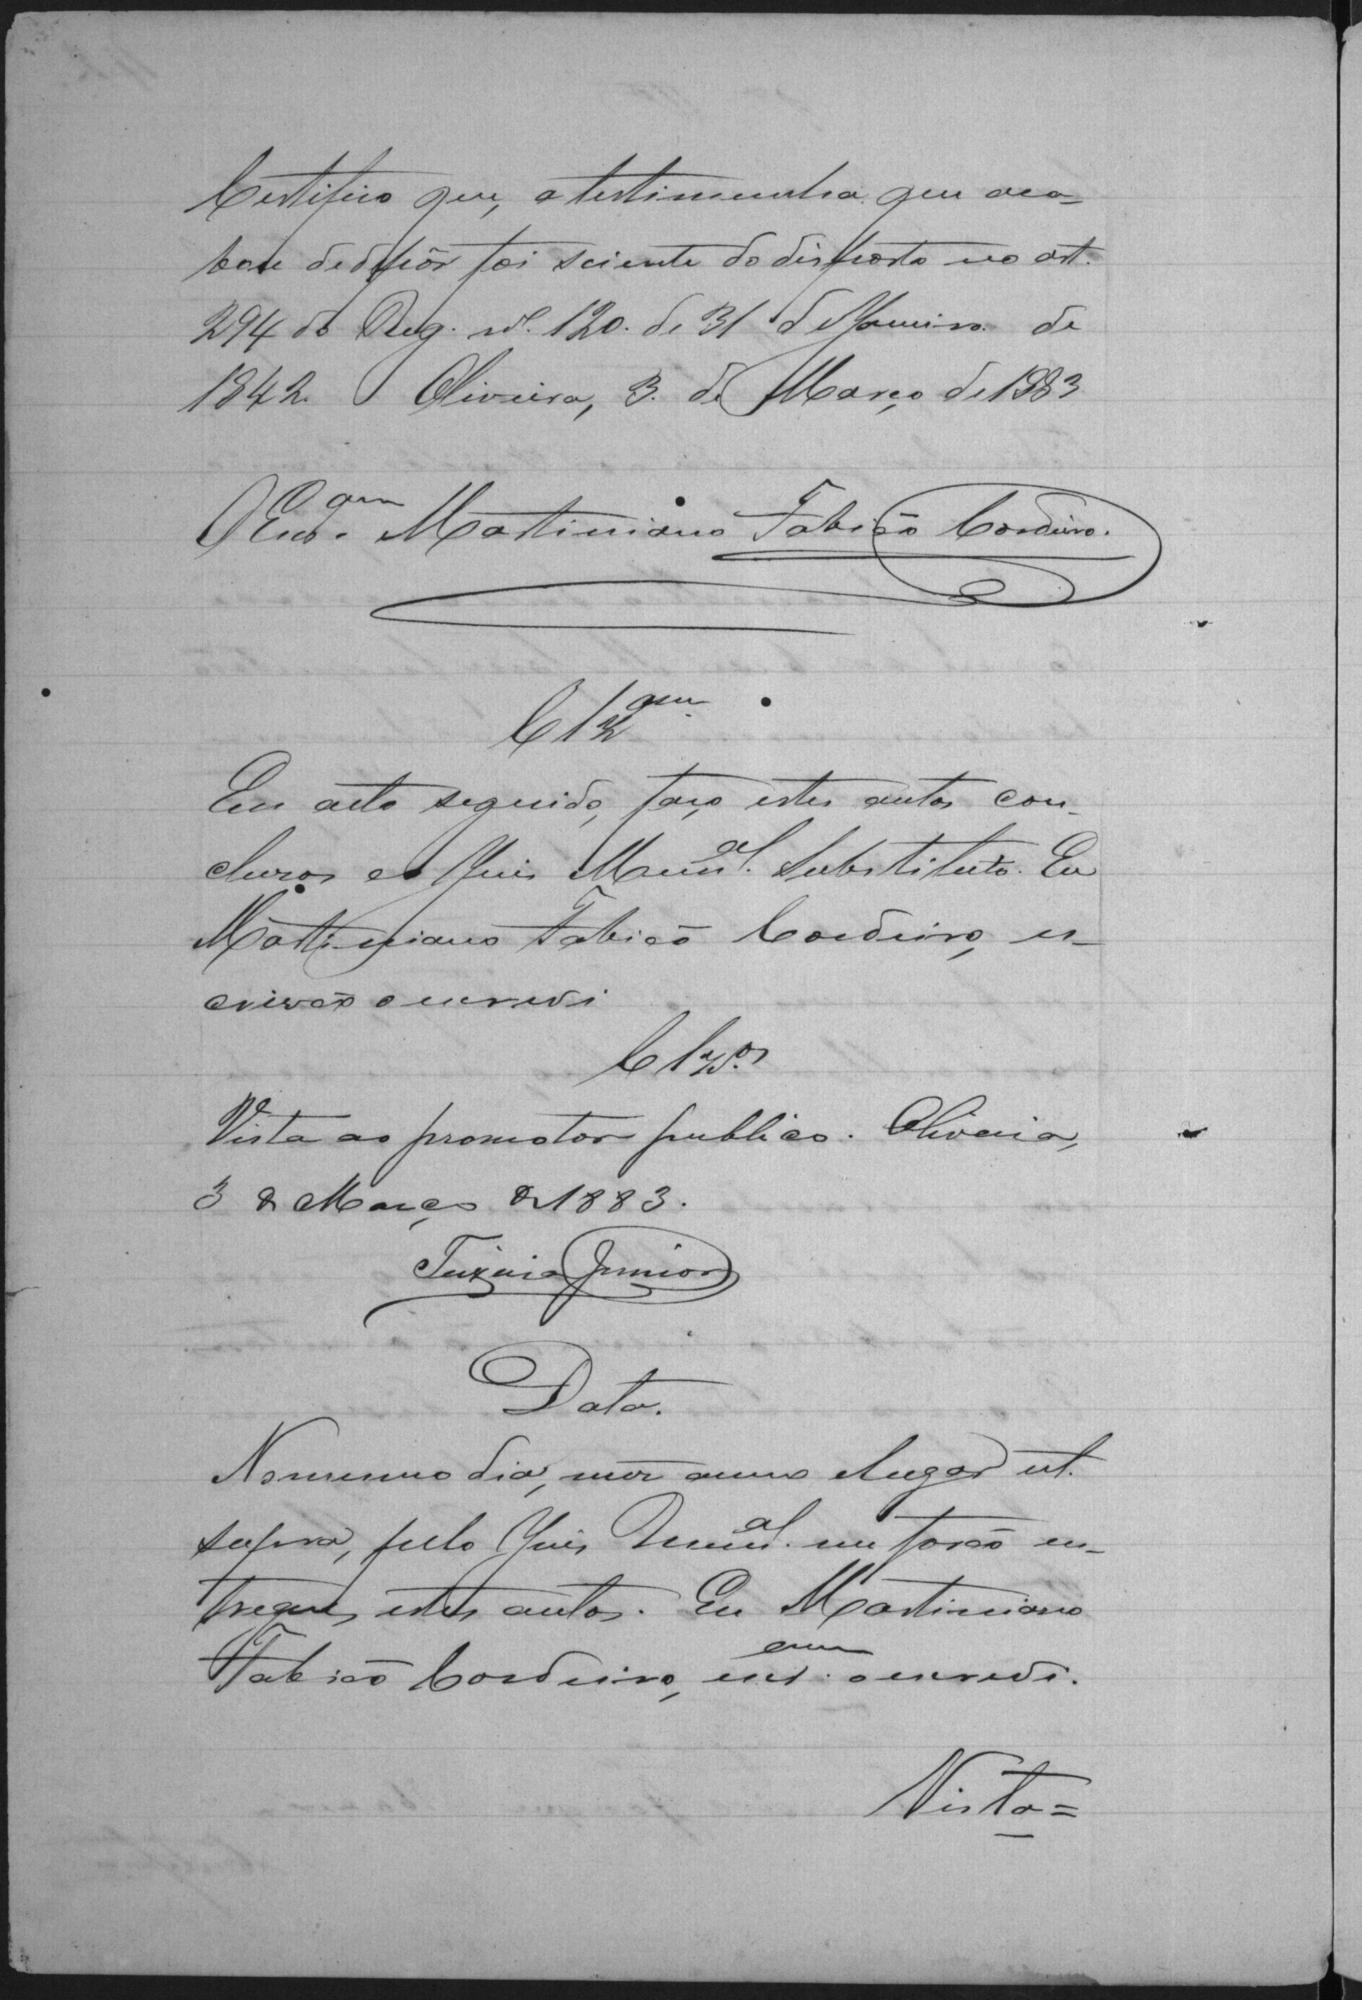 Certifico que, a testimunha que aca-
bou de depôr foi sciente do disposto no art.
294 do Reg. nº. 120. de 31 de Janeiro de
1842. Oliveira, 3. de Março de 1883
O Escr.am Martiniano Fabião Cordeiro.
Clz
Em acto seguido, faço estes autos con-
clusos ao Juis Munal. Substituto. Eu
Martiniano Fabião Cordeiro, es-
crivão o escrevi
Clzos
Vista ao promotor publico. Oliveira,
3 de Março de 1883.
Teixeira Junior
Data.
No mesmo dia, mez anno e lugar ut.
supra, pelo Juis Munal. me forão en-
tregues estes autos. Eu Martiniano
Fabião Cordeiro, escr.am o escrevi.
Vista=